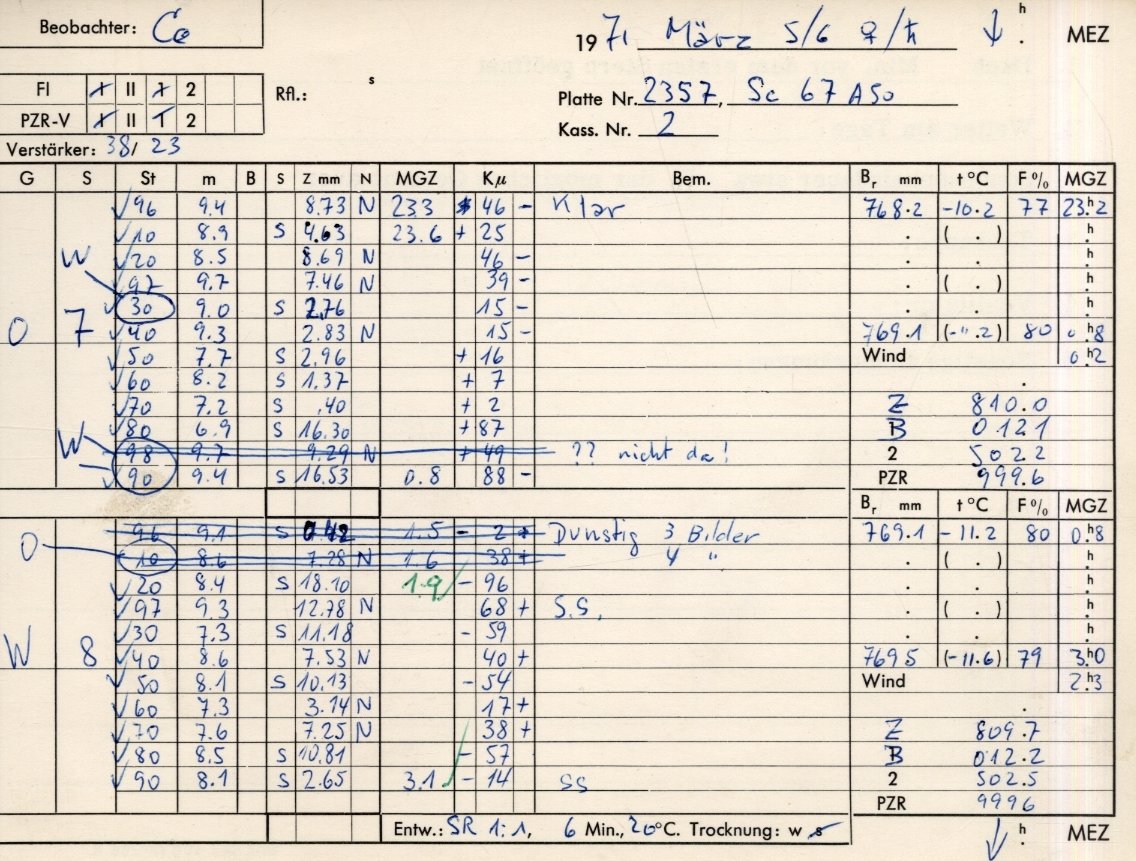 Beobachter: Co
1971 März 5/6 ♀/♄ ↓ h . MEZ
FI I II 1 2 Rfl.: s
Platte Nr. 2357, Sc 67 A50
PZR-V I II 1 2
Kass. Nr. 2
Verstärker: 38/23
G S St m B S Z mm N MGZ Kμ Bem. Br mm t °C F % MGZ
96 9.4 8.73 N 23.3 46 - Klar 768.2 -10.2 77 23.h2
10 8.9 S 4.63 23.6 + 25 . ( . ) h
W 20 8.5 8.69 N 46 - . . h
97 9.7 7.46 N 39 - . ( . ) h
30 9.0 S 2.76 15 - . . h
O 7 40 9.3 2.83 N 15 - 769.1 (-11.2) 80 0.h8
50 7.7 S 2.96 + 16 Wind 0.h2
60 8.2 S 1.37 + 7 .
70 7.2 S .40 + 2 Z 810.0
W 80 6.9 S 16.30 + 87 B 012.1
98 9.7 9.29 N + 49 ?? nicht da! 2 502.2
90 9.4 S 16.53 0.8 88 - PZR 999.6
Br mm t °C F % MGZ
O 96 9.1 S 0.42 1.5 - 2 + Dunstig 3 Bilder 769.1 -11.2 80 0.h8
10 8.6 7.28 N 1.6 38 + 4 " . ( . ) h
20 8.4 S 18.10 1.9 - 96 . . h
97 9.3 12.78 N 68 + S.S. . ( . ) h
30 7.3 S 11.18 - 59 . . h
W 8 40 8.6 7.53 N 40 + 769.5 (-11.6) 79 3.h0
50 8.1 S 10.13 - 54 Wind 2.h3
60 7.3 3.14 N 17 + .
70 7.6 7.25 N 38 + Z 809.7
80 8.5 S 10.81 - 57 B 012.2
90 8.1 S 2.65 3.1 - 14 SS 2 502.5
PZR 999.6
Entw.: SR 1:1, 6 Min., 20°C. Trocknung: w s ↓ h . MEZ